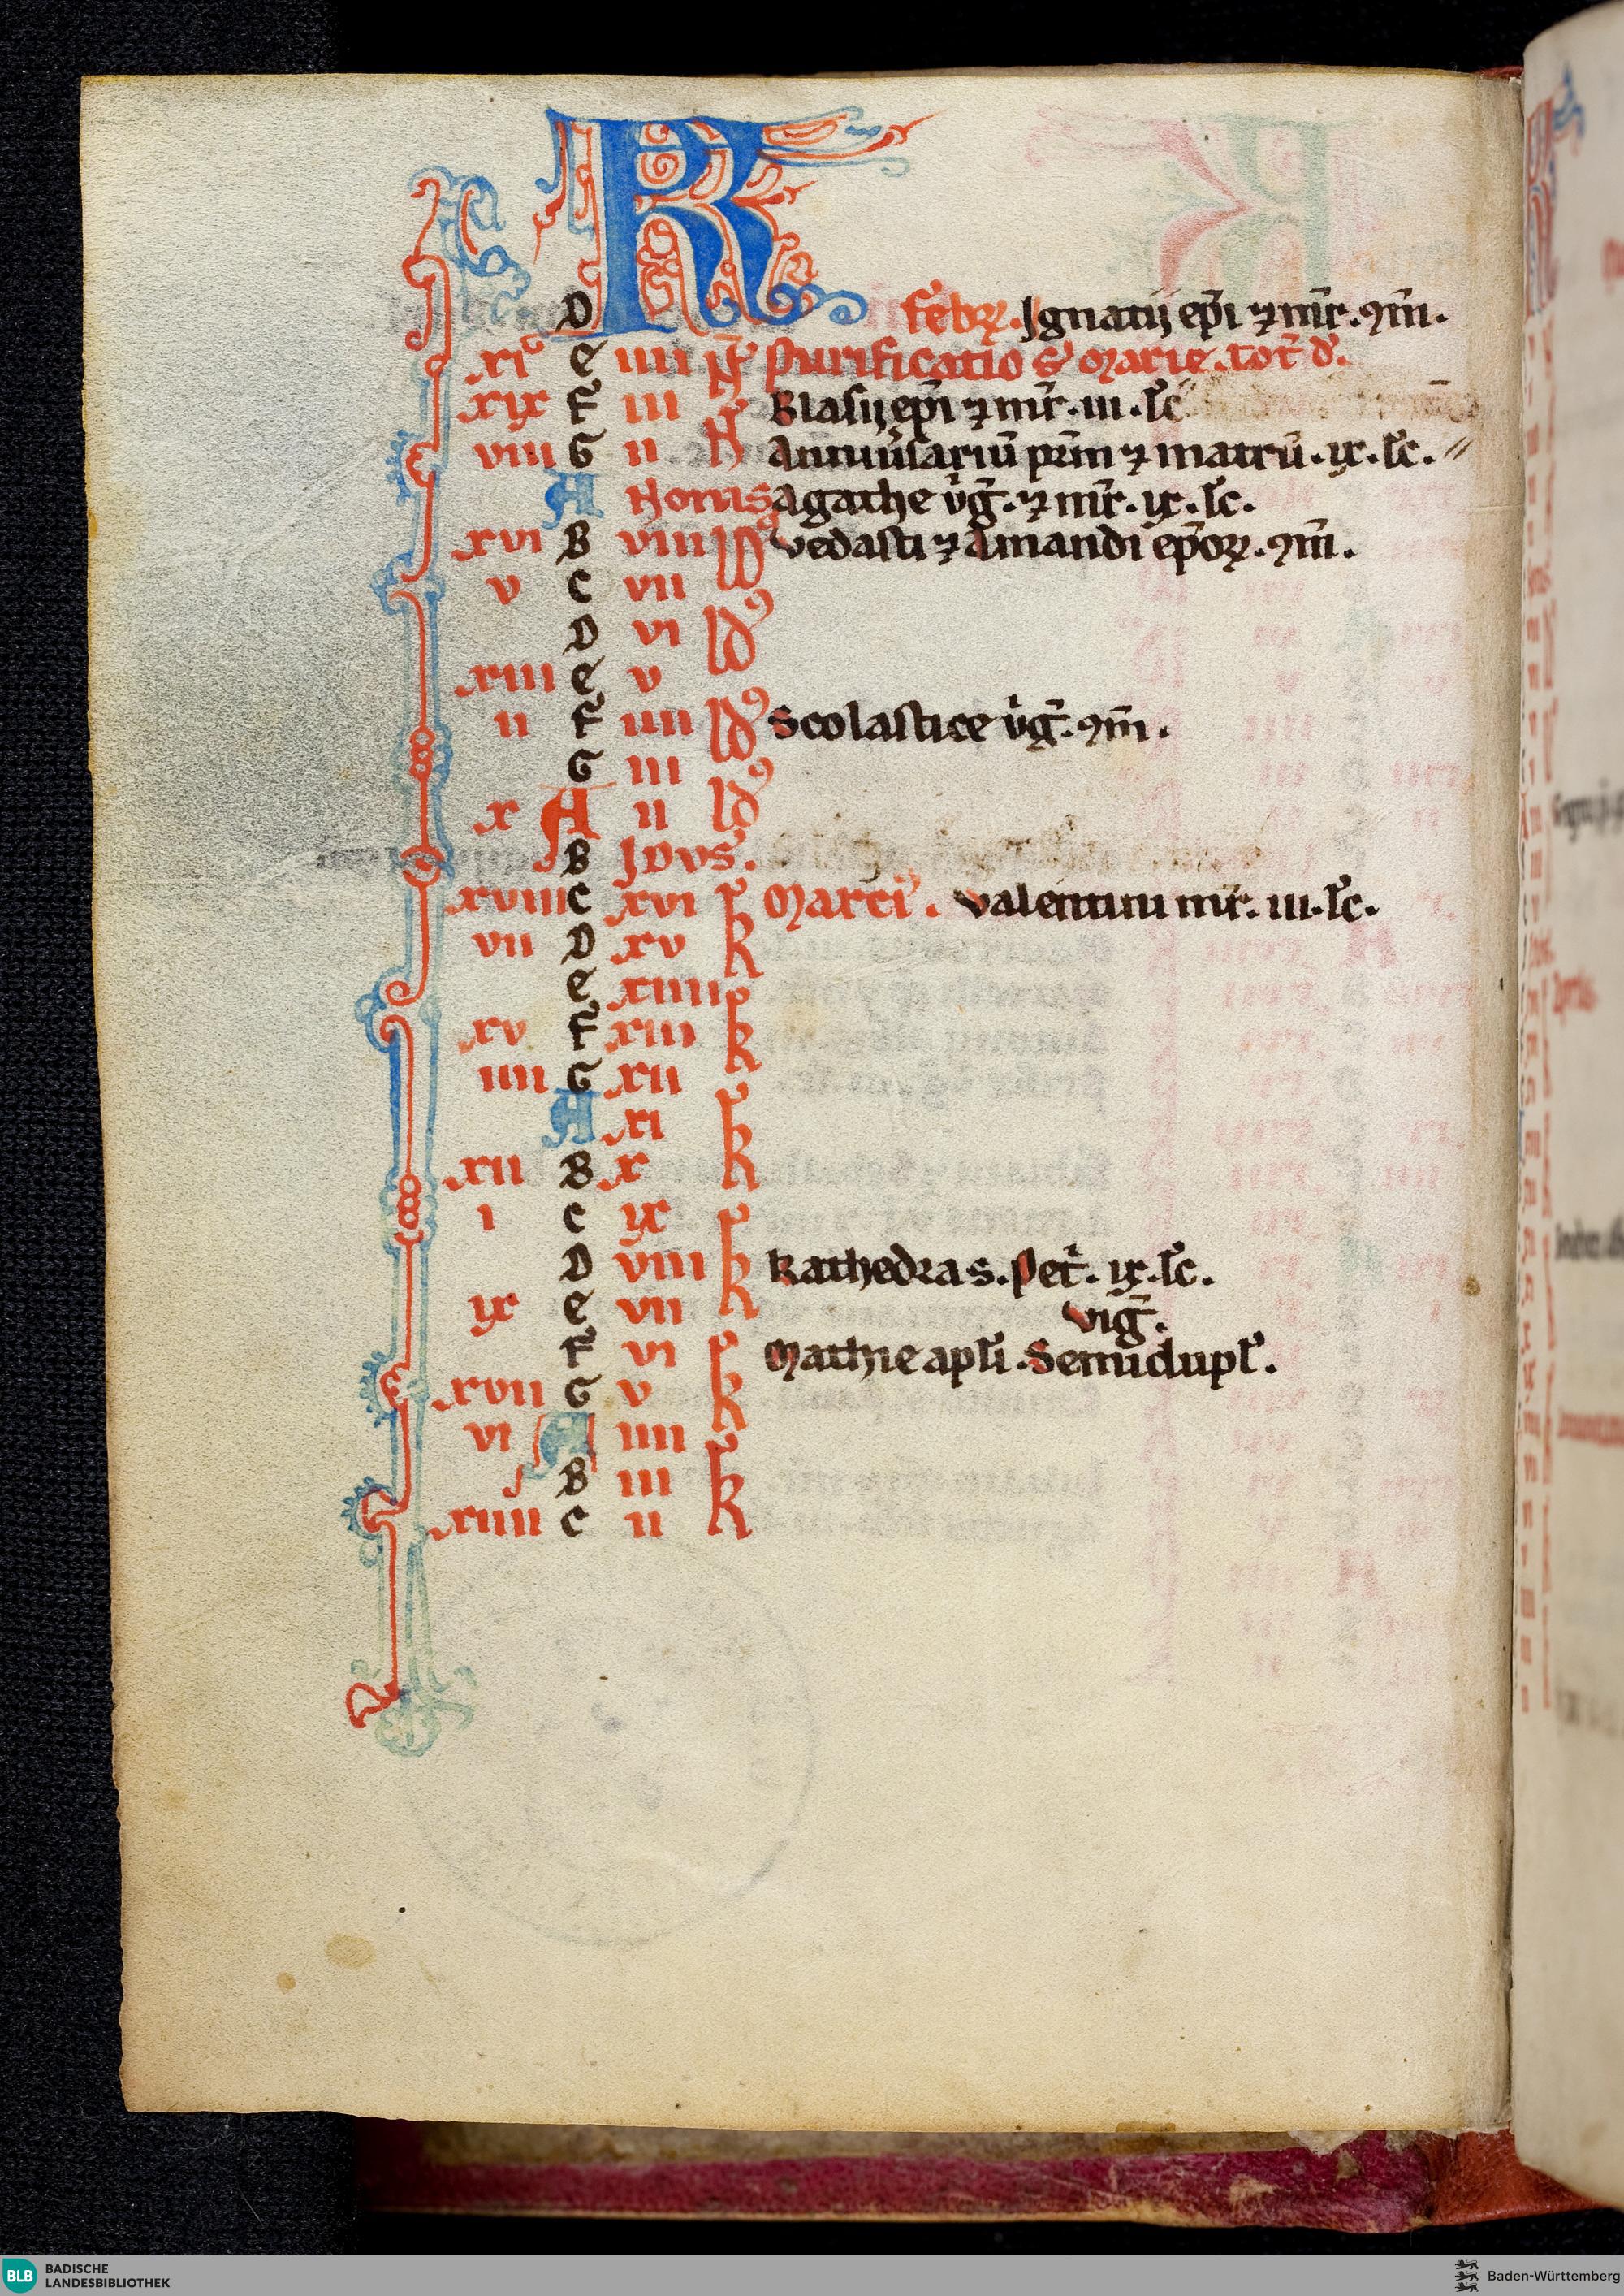 KL
D Febrꝝ. Ignatij ep̄i ⁊ mr̄. ꝯm̄.
xi e iiii N Purificatio s̄ Marie. tot̄ d̄.
xix F iii Blasij ep̄i ⁊ mr̄. iii. lc̄
viii G ii N Anniu̓sariū pr̄m ⁊ matrū. ix. lc̄.
A Nonis Agathe v̓ḡ. ⁊ mr̄. ix. lc̄.
xvi B viii Idꝰ Vedasti ⁊ Amandi ep̄oꝝ. ꝯm̄.
v C vii
D vi Idꝰ
xiii e v
ii F iiii Idꝰ Scolastice v̓ḡ. ꝯm̄.
G iii
x A ii Idꝰ
B Idvs.
xviii C xvi kl Marcij. Valentini mr̄. iii. lc̄.
vii D xv
e xiiii kl
xv F xiii
iiii G xii kl
A xi
xii B x
i C ix kl
D viii Kathedra s. Pet̓. ix. lc̄.
ix e vii viḡ.
F vi kl Mathie apl̄i. Semidupl̓.
xvii G v
vi A iiii kl
B iii
xiiii C ii
BLB BADISCHE
LANDESBIBLIOTHEK
Baden-Württemberg